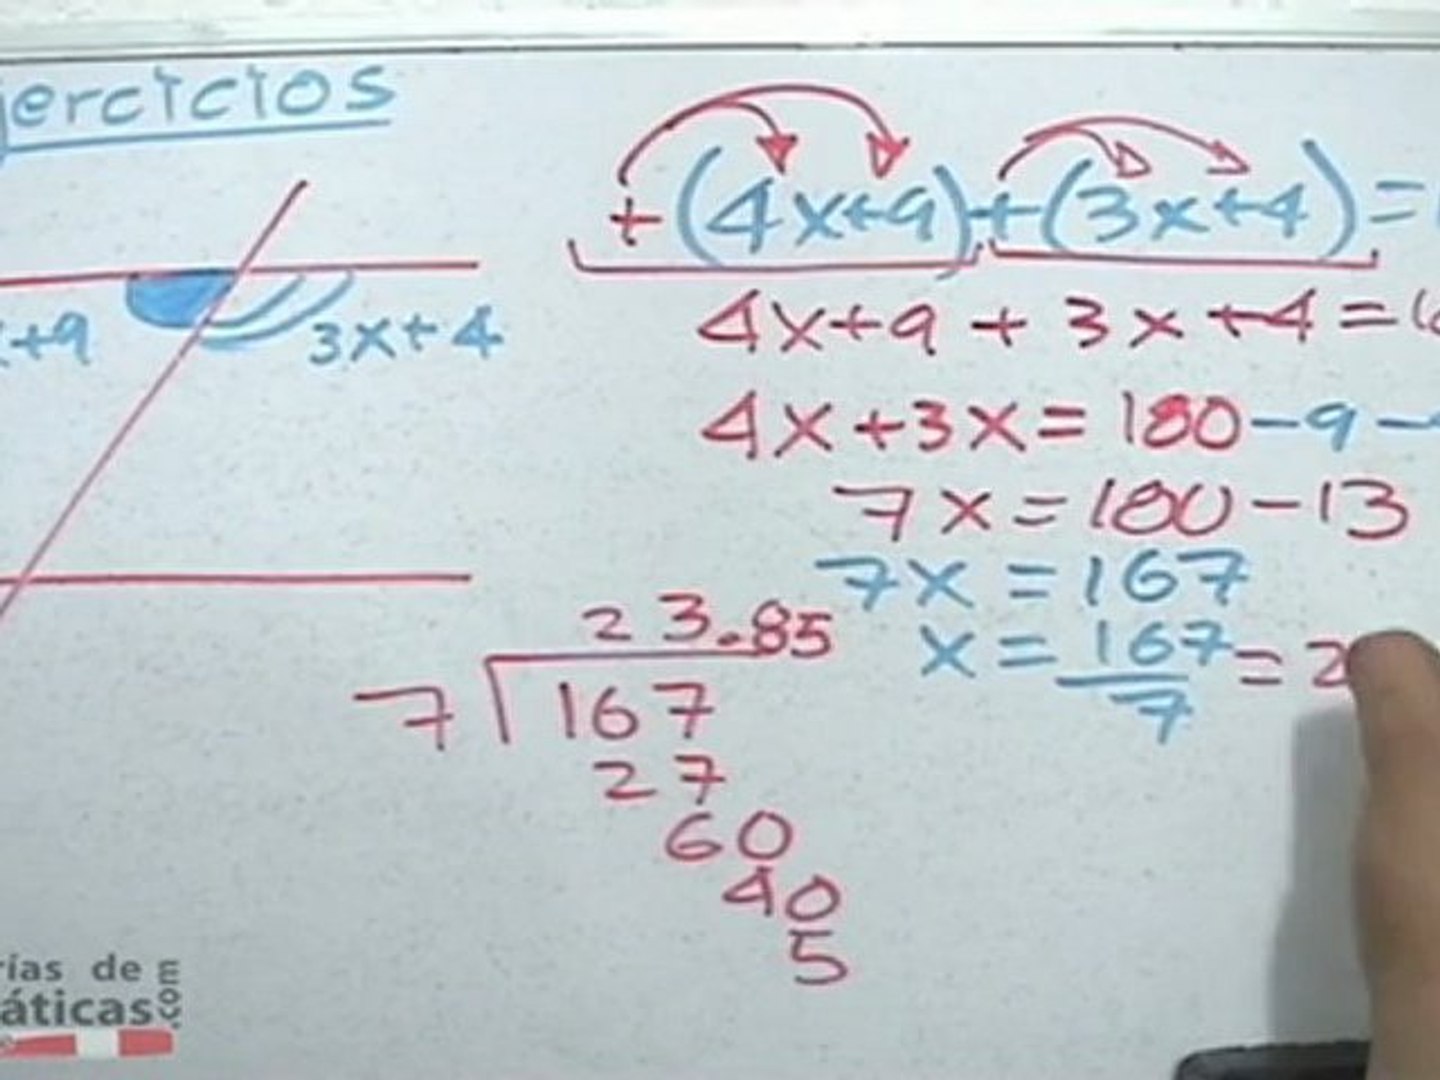 jercicios
+(4x+9)+(3x+4)=
+9
3x+4
4x+9+3x+4=
4x+3x=180-9-
7x=180-13
7x=167
x=167/7=2
23.85
7 167
27
60
40
5
rías de
áticas.com